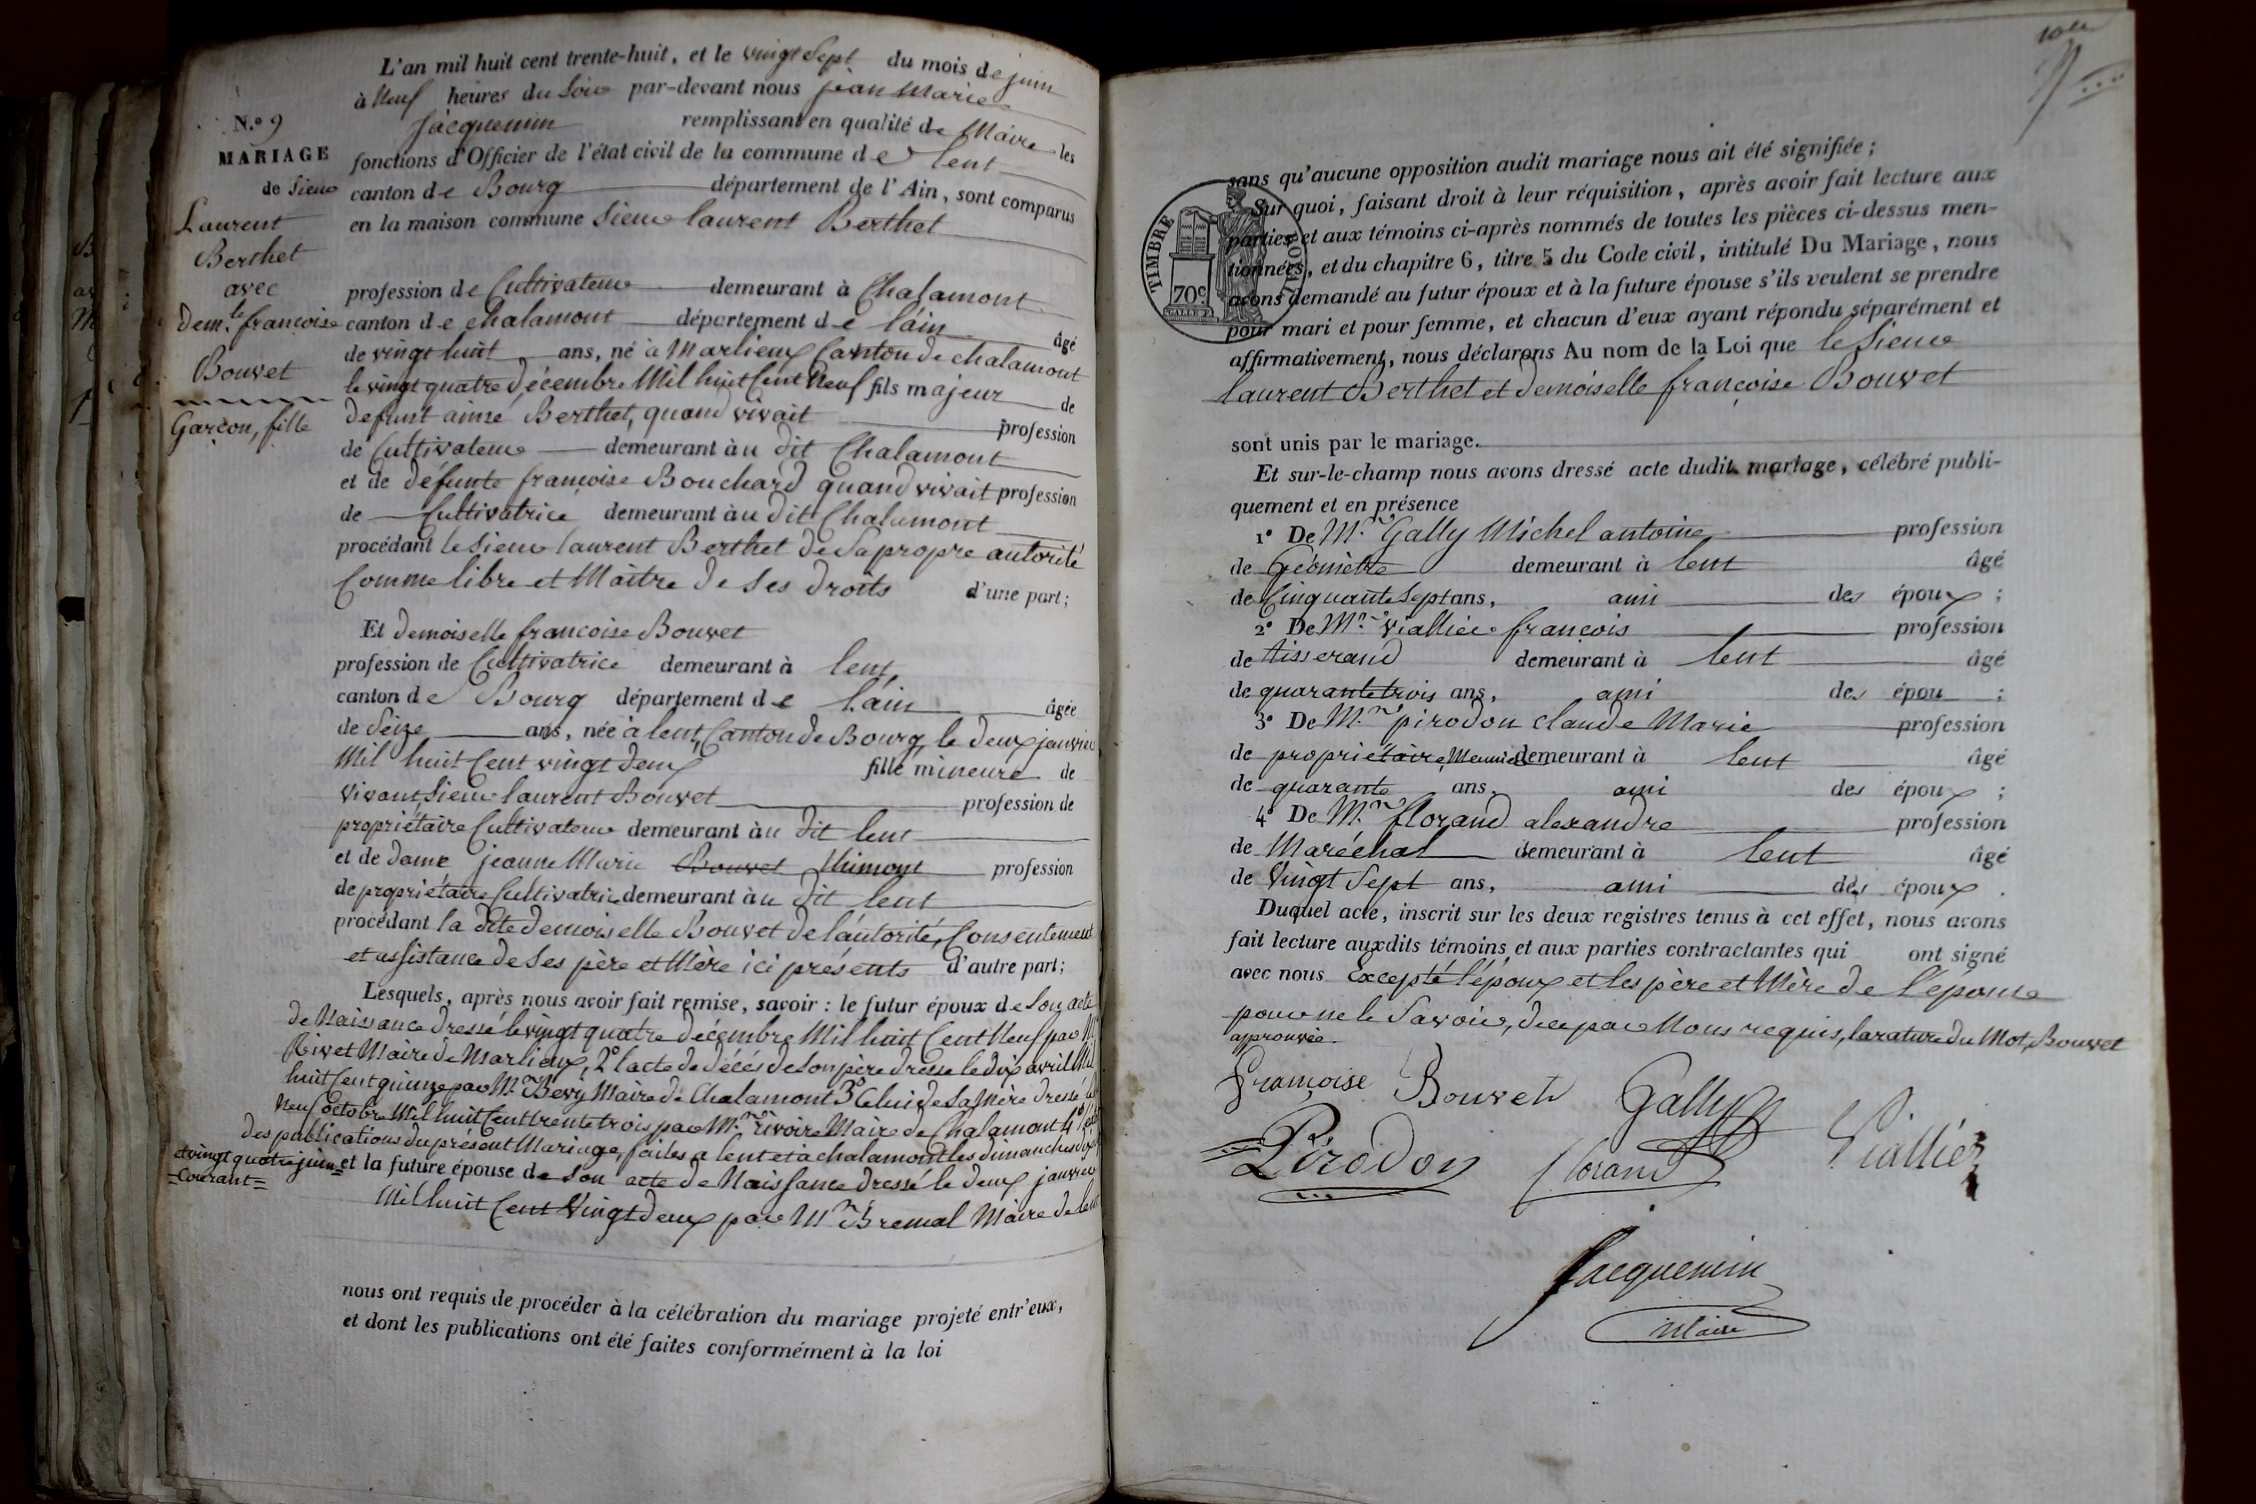 L'an mil huit cent trente-huit, et le vingt Sept du mois de juin
à Neuf heures du Soir par-devant nous jean Marie
Jacquemin remplissant en qualité de Maire les
fonctions d'Officier de l'état civil de la commune de lent
canton de Bourg département de l'Ain, sont comparus
en la maison commune Sieur laurent Berthet
N.° 9
MARIAGE
de Sieur
Laurent
Berthet
avec
dem.lle françoise
Bouvet
Garçon, fille
profession de Cultivateur demeurant à Chalamont
canton de chalamont département de l'ain âgé
de vingt huit ans, né à Marlieux Canton de chalamont
le vingt quatre Décembre Mil huit Cent Neuf fils majeur de
defunt aimé Berthet, quand vivait profession
de Cultivateur demeurant àu dit Chalamont
et de défunte françoise Bouchard quand vivait profession
de Cultivatrice demeurant àu dit Chalamont
procédant le Sieur laurent Berthet de Sa propre autorité
Comme libre et Maitre de Ses droits d'une part;
Et demoiselle françoise Bouvet
profession de Cultivatrice demeurant à lent,
canton de Bourg département de l'ain âgée
de Seize ans, née à lent, Canton de Bourg, le deux janvier
Mil huit Cent vingt deux fille mineure de
vivant, Sieur laurent Bouvet profession de
propriétaire Cultivateur demeurant àu dit lent
et de dame jeanne Marie Bouvet Humont profession
de propriétaire Cultivatrice demeurant àu dit lent
procédant la dite demoiselle Bouvet de l'autorité, Consentement
et assistance de Ses père et Mère ici présents d'autre part;
Lesquels, après nous avoir fait remise, savoir : le futur époux de Son acte
de Naissance dressé le vingt quatre décembre Mil huit Cent Neuf par Mr
Rivet Maire de Marlieux, 2° l'acte de décés de Son père dressé le dix avril Mil
huit Cent quinze par Mr. Bevy Maire de Chalamont 3° Celui de Sa Mère dressé le
Neuf octobre Mil huit Cent trente trois par Mr. rivoire Maire de Chalamont 4°
des publications du présent Mariage, faites a lent et à chalamont les dimanches
et vingt quatre juin = et la future épouse de Son acte de Naissance dressé le deux janvier
= Courant =
Mil huit Cent Vingt deux par Mr Bremal Maire de lent
nous ont requis de procéder à la célébration du mariage projeté entr'eux,
et dont les publications ont été faites conformément à la loi
sans qu'aucune opposition audit mariage nous ait été signifiée ;
Sur quoi, faisant droit à leur réquisition, après avoir fait lecture aux
parties et aux témoins ci-après nommés de toutes les pièces ci-dessus men-
tionnées, et du chapitre 6, titre 5 du Code civil, intitulé Du Mariage, nous
avons demandé au futur époux et à la future épouse s'ils veulent se prendre
pour mari et pour femme, et chacun d'eux ayant répondu séparément et
affirmativement, nous déclarons Au nom de la Loi que le Sieur
laurent Berthet et demoiselle françoise Bouvet
TIMBRE
70c
sont unis par le mariage.
Et sur-le-champ nous avons dressé acte dudit mariage, célébré publi-
quement et en présence
1° De Mr. Gally Michel antoine profession
de Géomètre demeurant à lent âgé
de Cinquante Sept ans, ami des époux ;
2° De Mr. Viallier françois profession
de tisserand demeurant à lent âgé
de quarante trois ans, ami des épou ;
3° De Mr. pirodon claude Marie profession
de propriétaire, Meunier demeurant à lent âgé
de quarante ans, ami des époux ;
4° De Mr. florand alexandre profession
de Maréchal demeurant à lent âgé
de Vingt Sept ans, ami des époux .
Duquel acte, inscrit sur les deux registres tenus à cet effet, nous avons
fait lecture auxdits témoins et aux parties contractantes qui ont signé
avec nous Excepté l'époux et les père et Mère de l'épouse
pour ne le Savoir, de ce par Nous requis, la rature du Mot, Bouvet
approuvée.
Françoise Bouvet Gally
Pirodon florand Viallier
Jacquemin
Maire